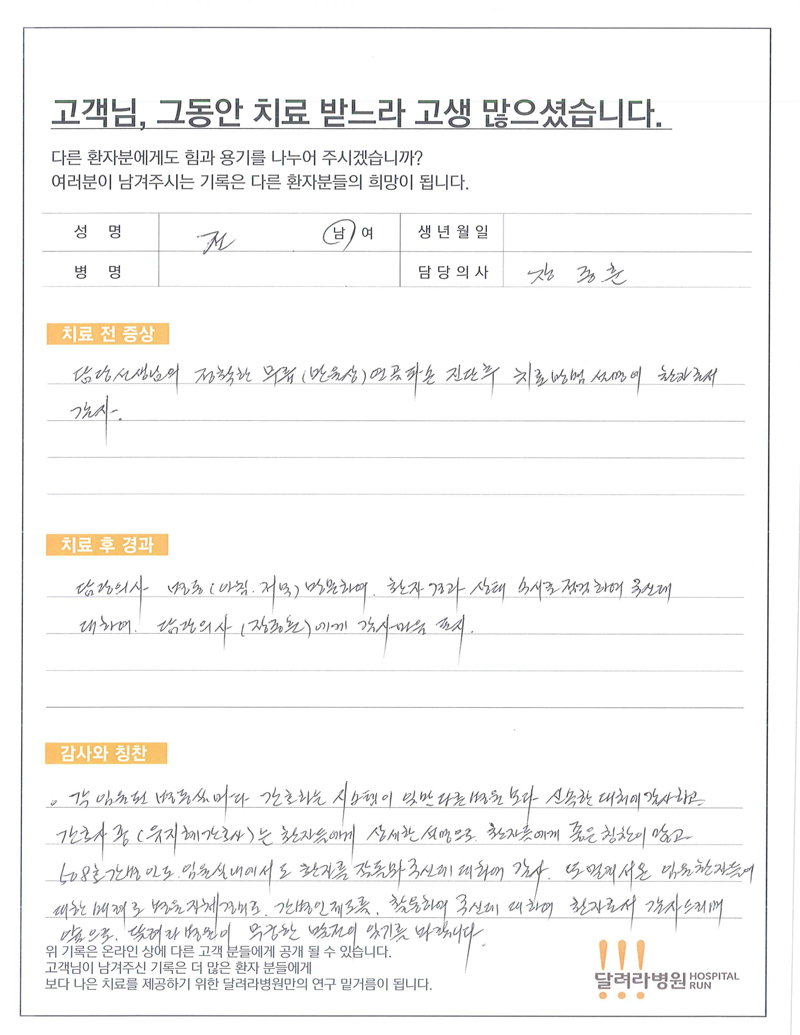 고객님, 그동안 치료 받느라 고생 많으셨습니다.
다른 환자분에게도 힘과 용기를 나누어 주시겠습니까?
여러분이 남겨주시는 기록은 다른 환자분들의 희망이 됩니다.
성 명 전 남 여 생년월일
병 명 담당의사 장종훈
치료 전 증상
담당선생님의 정확한 무릎(반월상)연골파손 진단후 치료방법 설명에 환자로서
감사.
치료 후 경과
담당의사 병동(아침.저녁) 방문하여. 환자 경과 상태 수시로 점검하여 주신데
대하여. 담당의사 (장종훈)에게 감사마음 표시.
감사와 칭찬
각 입원된 병동실마다 간호하는 시스템이 일반 다른병원 보다 신속한 대처에 감사하고
간호사 중 (유지혜간호사)는 환자들에게 상세한 설명으로 환자들에게 좋은 칭찬이 많고
508호 간병인도. 입원실내에서도 환자를 주신데 대하여 감사. 또 멀리서온 입원환자들에
대한 배려로 병원자체 간병인제도를. 주신데 대하여 환자로서 감사드리며
앞으로. 달려라병원이 무궁한 발전이 있기를 바랍니다.
위 기록은 온라인 상에 다른 고객 분들에게 공개 될 수 있습니다.
고객님이 남겨주신 기록은 더 많은 환자 분들에게
보다 나은 치료를 제공하기 위한 달려라병원만의 연구 밑거름이 됩니다.
달려라병원 HOSPITAL RUN